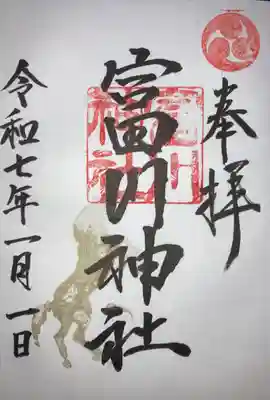 奉拝
富川神社
令和七年一月一日